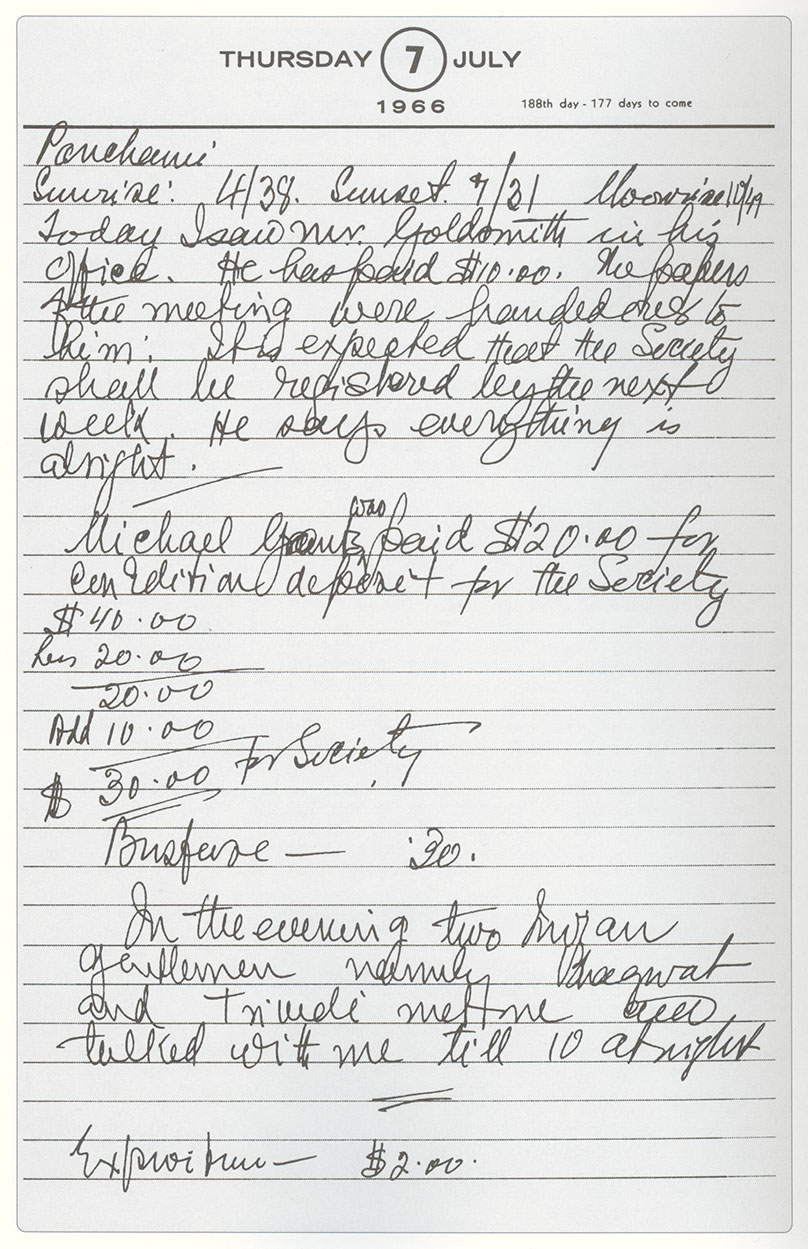 THURSDAY 7 JULY
1966
188th day - 177 days to come
Panchami
Sunrise: 4/38. Sunset. 7/31 Moonrise
Today I saw Mr. Goldsmith in his
office. He has paid $10.00. The papers
of the meeting were handed over to
him. It is expected that the Society
shall be registered by the next
week. He says everything is
alright.
was
Michael Grant paid $20.00 for
Con Edition deposit for the Society
$40.00
Less 20.00
20.00
Add 10.00
$ 30.00 for Society
Busfare — .30.
In the evening two Indian
gentlemen namely Bhagwat
and Trivedi met me and
talked with me till 10 at night
Expenditure — $2.00.